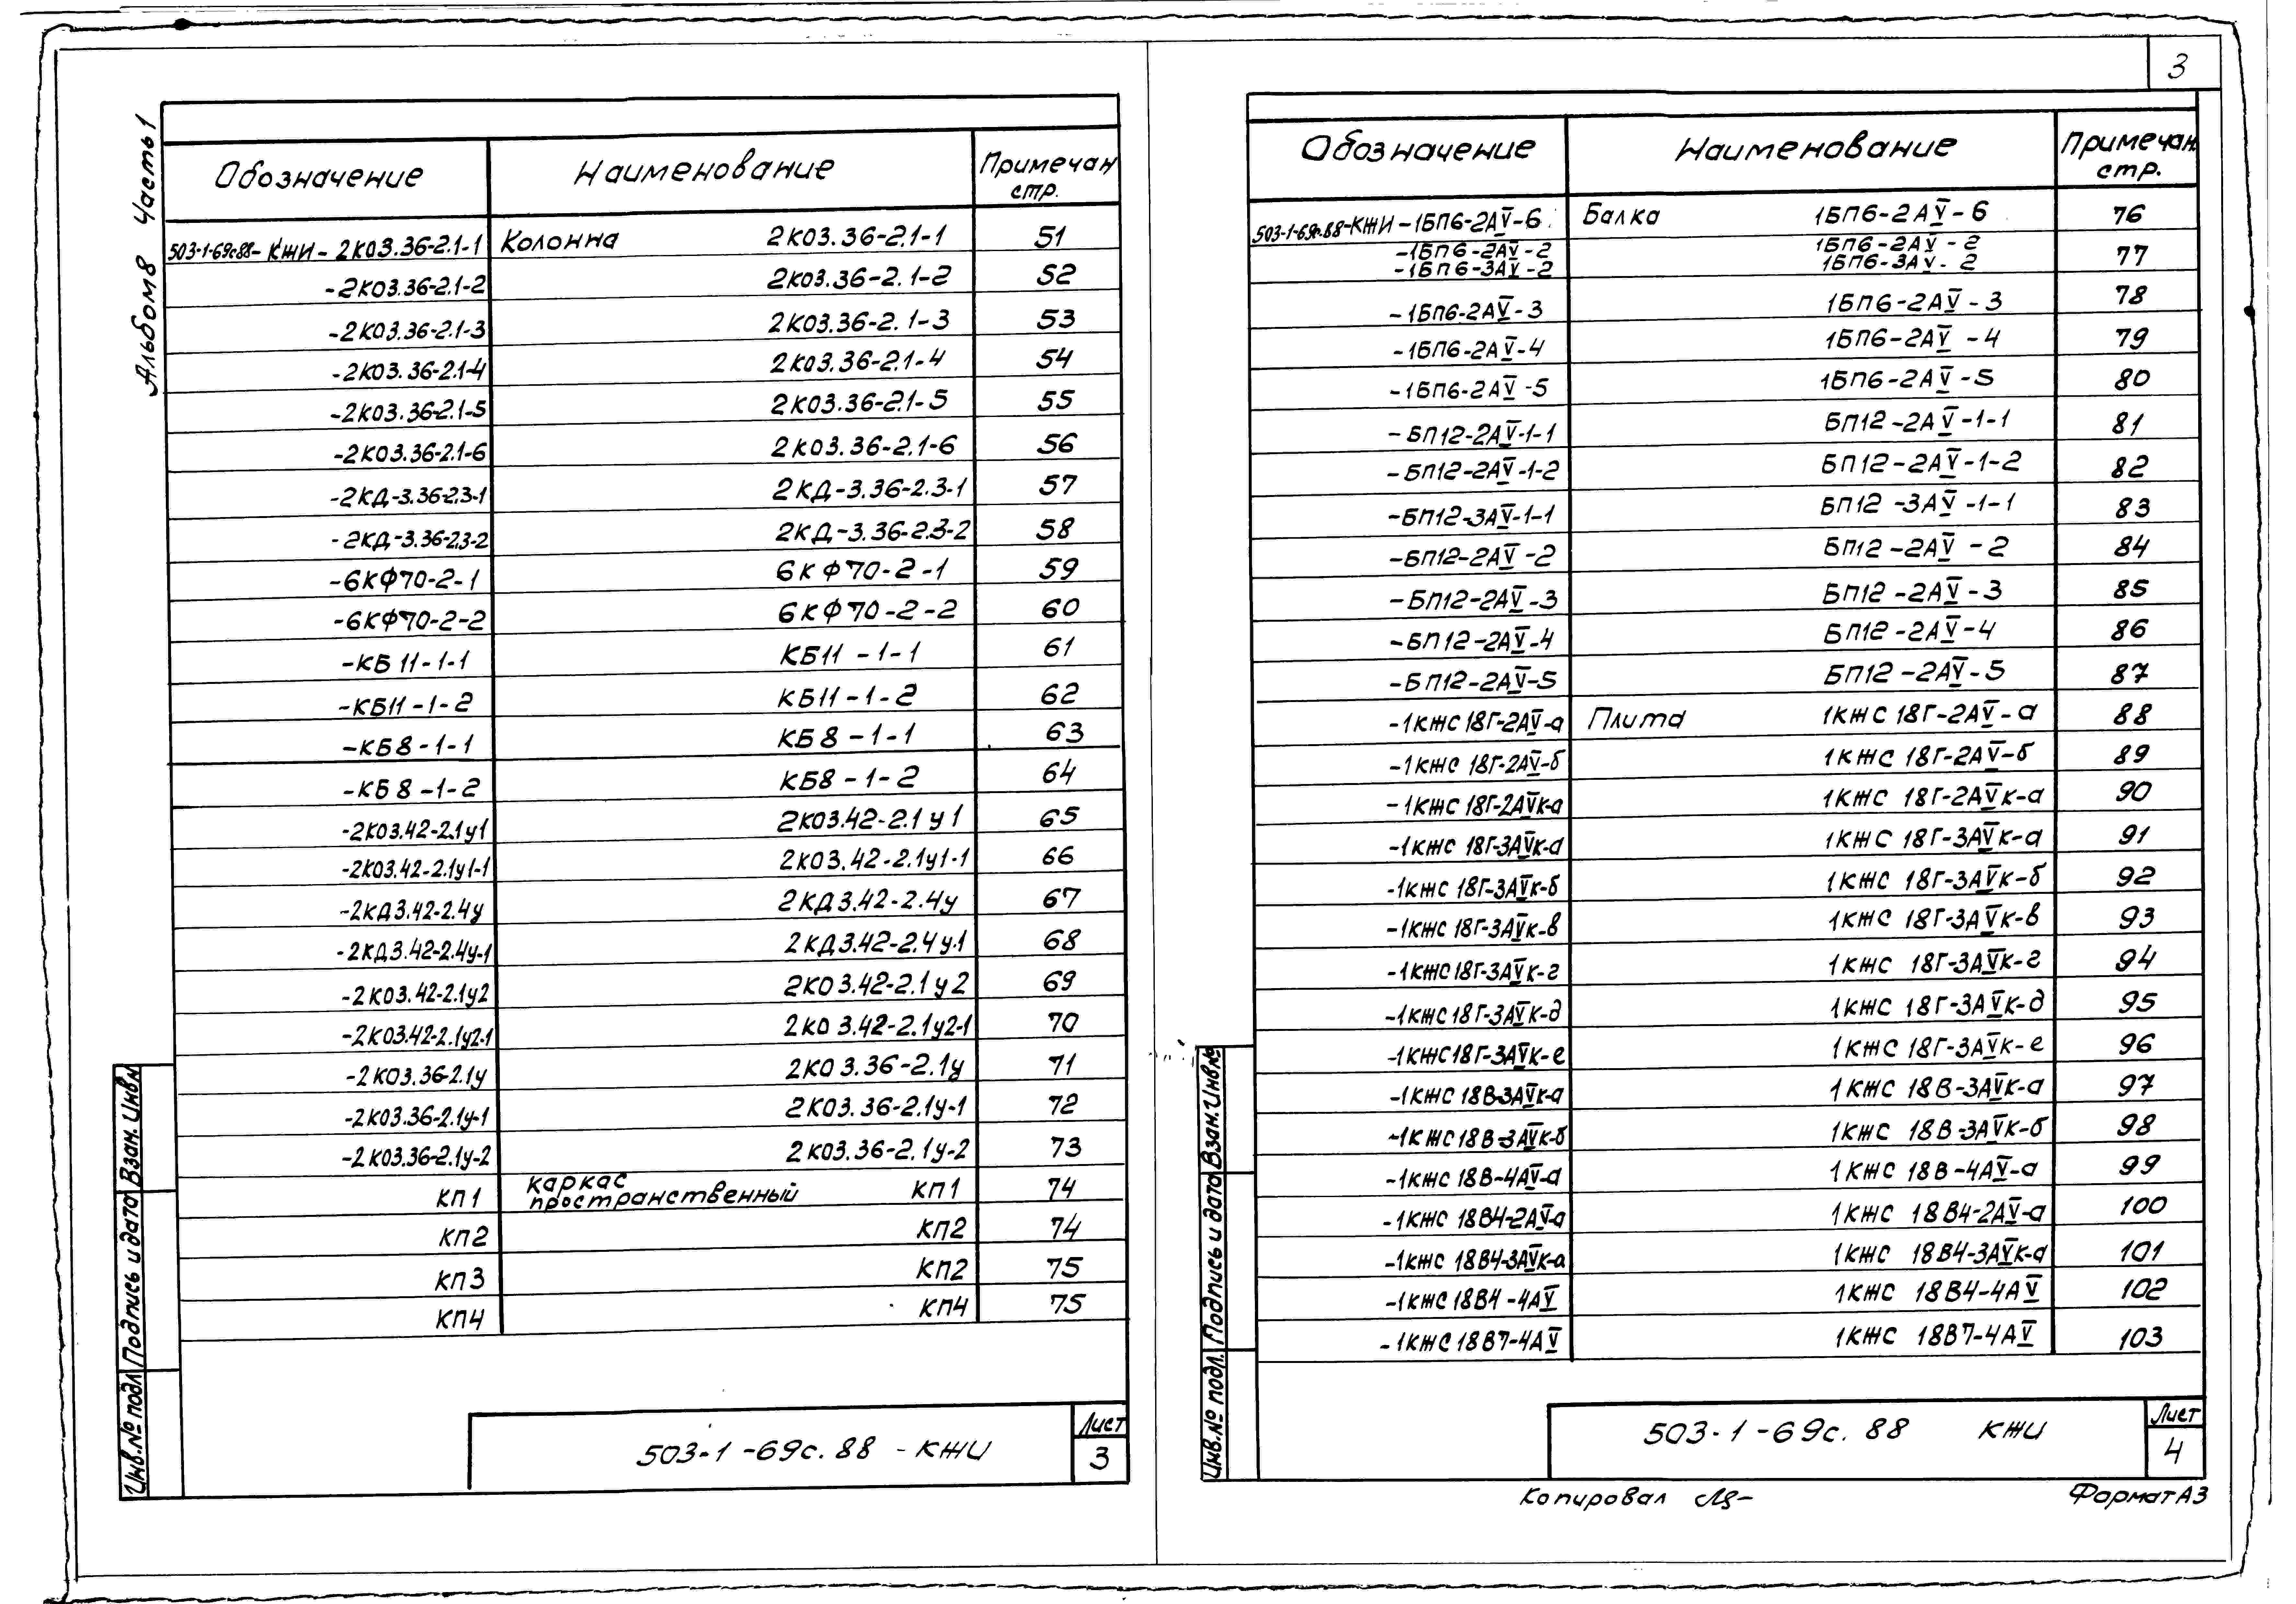 3
Альбом 8 Часть 1
Обозначение Наименование Примечан стр.
503-1-69с.88-КЖИ-2К03.36-2.1-1 Колонна 2К03.36-2.1-1 51
-2К03.36-2.1-2 2К03.36-2.1-2 52
-2К03.36-2.1-3 2К03.36-2.1-3 53
-2К03.36-2.1-4 2К03.36-2.1-4 54
-2К03.36-2.1-5 2К03.36-2.1-5 55
-2К03.36-2.1-6 2К03.36-2.1-6 56
-2КД-3.36-2.3-1 2КД-3.36-2.3-1 57
-2КД-3.36-2.3-2 2КД-3.36-2.3-2 58
-6КФ70-2-1 6КФ70-2-1 59
-6КФ70-2-2 6КФ70-2-2 60
-КБ11-1-1 КБ11-1-1 61
-КБ11-1-2 КБ11-1-2 62
-КБ8-1-1 КБ8-1-1 63
-КБ8-1-2 КБ8-1-2 64
-2К03.42-2.1у1 2К03.42-2.1у1 65
-2К03.42-2.1у1-1 2К03.42-2.1у1-1 66
-2КД3.42-2.4у 2КД3.42-2.4у 67
-2КД3.42-2.4у-1 2КД3.42-2.4у-1 68
-2К03.42-2.1у2 2К03.42-2.1у2 69
-2К03.42-2.1у2-1 2К03.42-2.1у2-1 70
-2К03.36-2.1у 2К03.36-2.1у 71
-2К03.36-2.1у-1 2К03.36-2.1у-1 72
-2К03.36-2.1у-2 2К03.36-2.1у-2 73
КП1 каркас пространственный КП1 74
КП2 КП2 74
КП3 КП2 75
КП4 КП4 75
Инв.№ подл. Подпись и дата Взам. Инв.№
503-1-69с.88 - КЖИ
Лист
3
Обозначение Наименование Примечан стр.
503-1-69с.88-КЖИ-1БП6-2АV-6 Балка 1БП6-2АV-6 76
-1БП6-2АV-2 1БП6-2АV-2 77
-1БП6-3АV-2 1БП6-3АV-2
-1БП6-2АV-3 1БП6-2АV-3 78
-1БП6-2АV-4 1БП6-2АV-4 79
-1БП6-2АV-5 1БП6-2АV-5 80
-БП12-2АV-1-1 БП12-2АV-1-1 81
-БП12-2АV-1-2 БП12-2АV-1-2 82
-БП12-3АV-1-1 БП12-3АV-1-1 83
-БП12-2АV-2 БП12-2АV-2 84
-БП12-2АV-3 БП12-2АV-3 85
-БП12-2АV-4 БП12-2АV-4 86
-БП12-2АV-5 БП12-2АV-5 87
-1КЖС18Г-2АV-а Плита 1КЖС18Г-2АV-а 88
-1КЖС 18Г-2АV-б 1КЖС 18Г-2АV-б 89
-1КЖС 18Г-2АVк-а 1КЖС 18Г-2АVк-а 90
-1КЖС 18Г-3АVк-а 1КЖС 18Г-3АVк-а 91
-1КЖС 18Г-3АVк-б 1КЖС 18Г-3АVк-б 92
-1КЖС 18Г-3АVк-в 1КЖС 18Г-3АVк-в 93
-1КЖС18Г-3АVк-г 1КЖС 18Г-3АVк-г 94
-1КЖС18Г-3АVк-д 1КЖС 18Г-3АVк-д 95
-1КЖС18Г-3АVк-е 1КЖС 18Г-3АVк-е 96
-1КЖС 18В-3АVк-а 1КЖС 18В-3АVк-а 97
-1КЖС18В-3АVк-б 1КЖС 18В-3АVк-б 98
-1КЖС 18В-4АV-а 1КЖС 18В-4АV-а 99
-1КЖС 18В4-2АV-а 1КЖС 18В4-2АV-а 100
-1КЖС 18В4-3АVк-а 1КЖС 18В4-3АVк-а 101
-1КЖС18В4-4АV 1КЖС 18В4-4АV 102
-1КЖС18В7-4АV 1КЖС 18В7-4АV 103
Инв.№ подл. Подпись и дата Взам. Инв.№
503-1-69с.88 КЖИ
Лист
4
Копировал
Формат А3